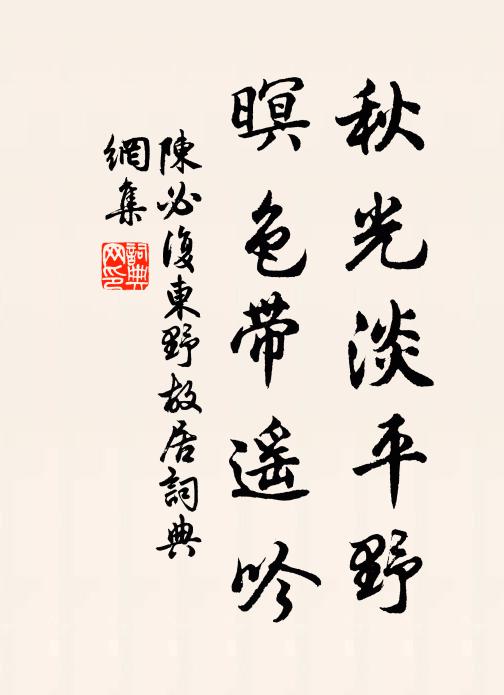 秋光淡平野
暝色帶遥吟
陳必復東野故居詞典
網集
詞典
网印